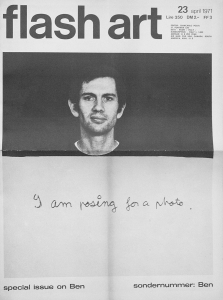 flash art
23 april 1971
Lire 300 DM 2- FF 3
I am posing for a photo.
special issue on Ben
sondernummer: Ben